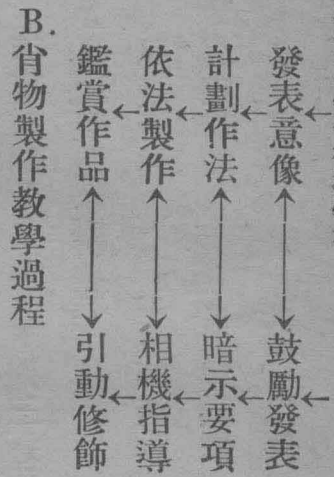 發表意像 鼓勵發表
計劃作法 暗示要項
依法製作 相機指導
鑑賞作品 引動修飾
B.肖物製作教學過程